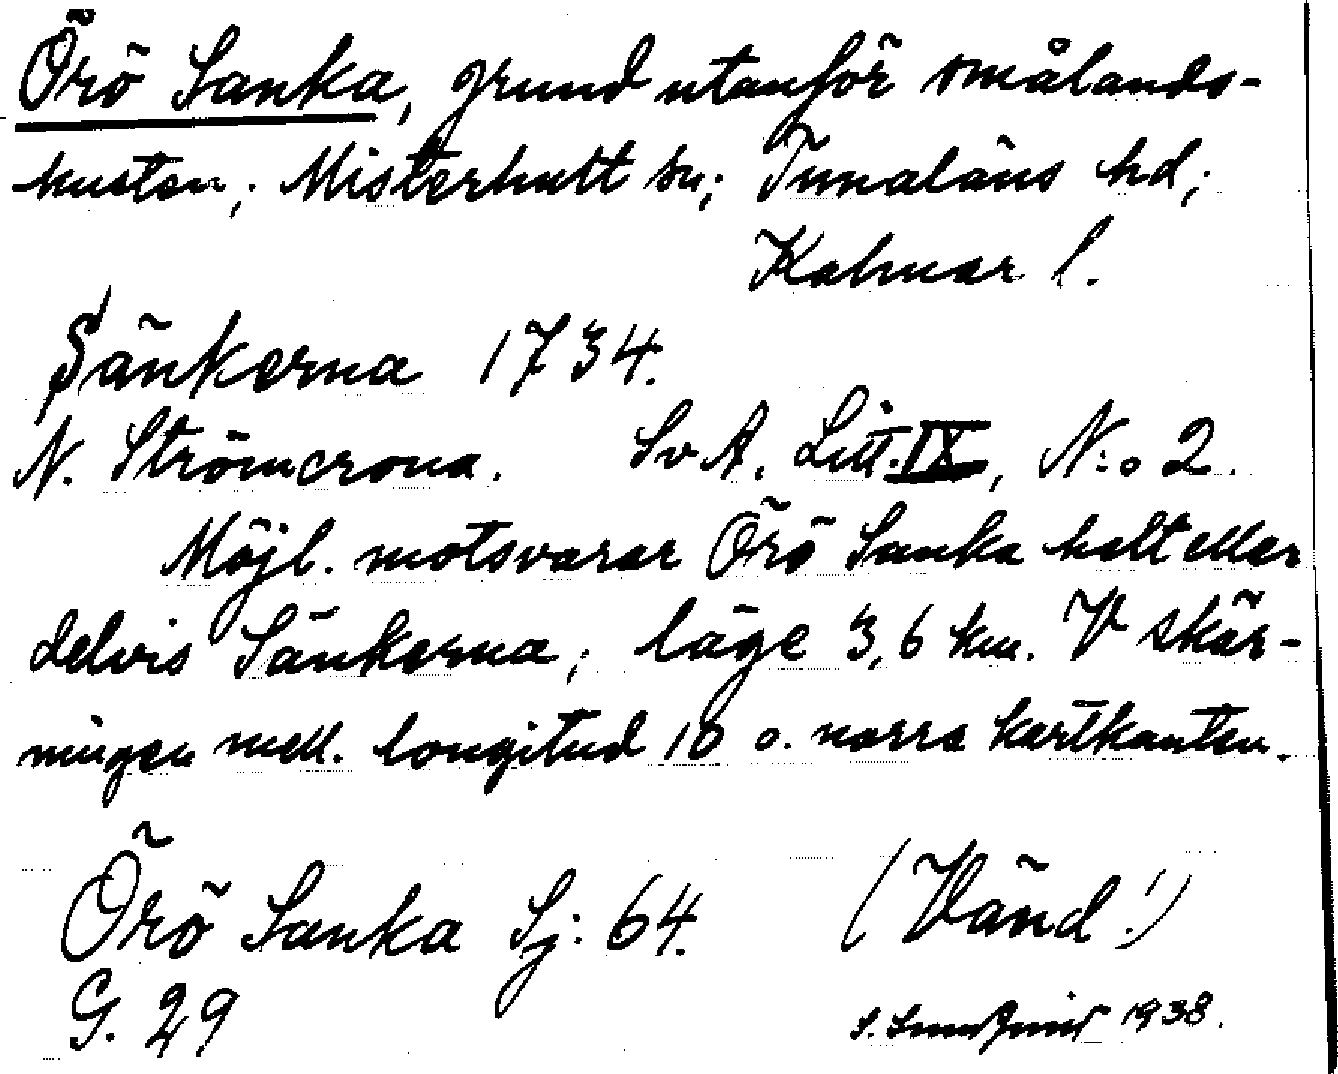 Örö Sanka, grund utanför smålands-
kusten; Misterhult sn; Tunaläns hd;
Kalmar l.
Sänkerna 1734.
N. Strömcrona. SvA. Litt. IX, N:o 2.
Möjl. motsvarar Örö Sanka helt eller
delvis Sänkerna, läge 3,6 km. V skär-
ningen mell. longitud 10 o. norra kartkanten.
Örö Sanka Sj: 64. (Vänd!)
G. 29
S. 1938.